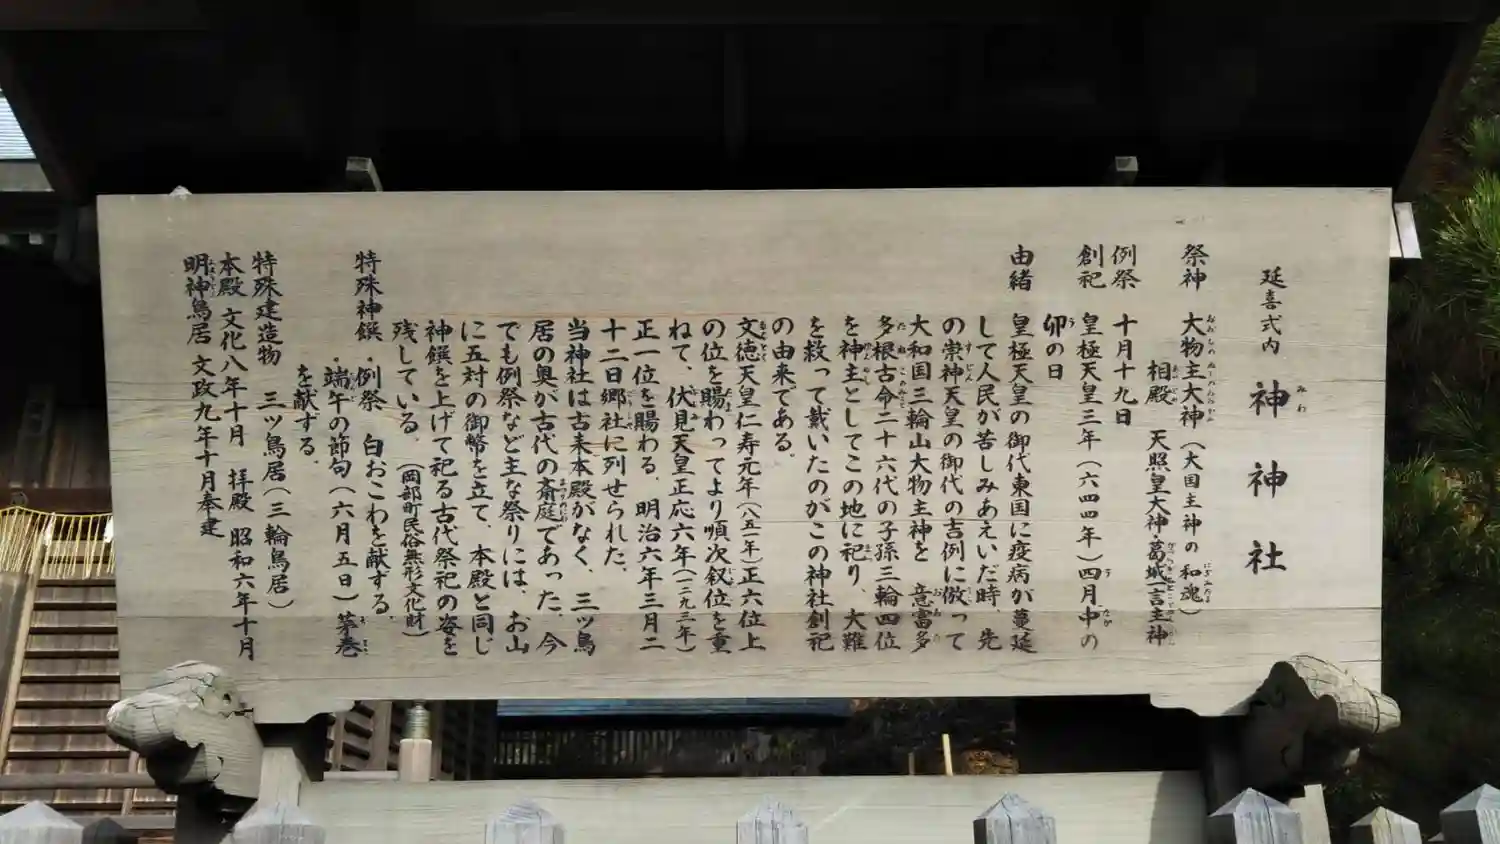 延喜式内 神神社
祭神 大物主大神(大国主神の和魂)
相殿 天照皇大神・葛城一言主神
例祭 十月十九日
創祀 皇極天皇三年(六四四年)四月中の
卯の日
由緒 皇極天皇の御代東国に疫病が蔓延
して人民が苦しみあえいだ時、先
の崇神天皇の御代の吉例に倣って
大和国三輪山大物主神を 意富多
多根古命二十六代の子孫三輪四位
を神主としてこの地に祀り、大難
を救って戴いたのがこの神社創祀
の由来である。
文徳天皇仁寿元年(八五一年)正六位上
の位を賜わってより順次叙位を重
ねて、伏見天皇正応六年(一二九三年)
正一位を賜わる。明治六年三月二
十二日郷社に列せられた。
当神社は古来本殿がなく、三ッ鳥
居の奥が古代の斎庭であった。今
でも例祭など主な祭りには、お山
に五対の御幣を立て、本殿と同じ
神饌を上げて祀る古代祭祀の姿を
残している。(岡部町民俗無形文化財)
特殊神饌 ・例祭 白おこわを献ずる。
・端午の節句(六月五日) 茅巻
を献ずる。
特殊建造物 三ツ鳥居(三輪鳥居)
本殿 文化八年十月 拝殿 昭和六年十月
明神鳥居 文政九年十月奉建